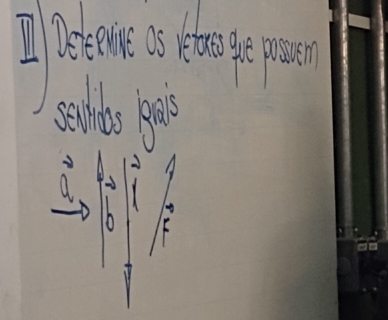 III) DETERMINE OS VETORES QUE POSSUEM
SENTIDOS IGUAIS
a b d F